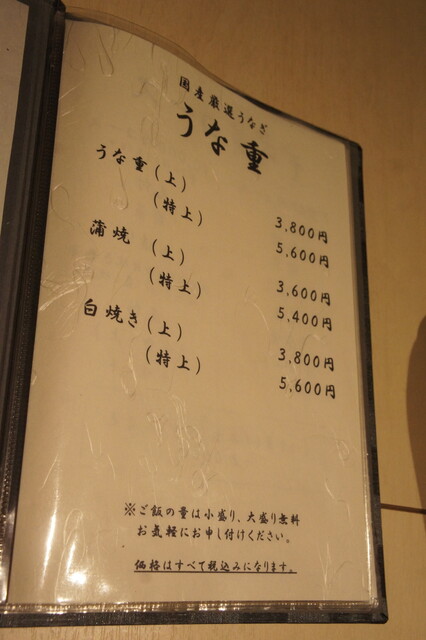 国産厳選うなぎ
うな重
うな重(上) 3,800円
(特上) 5,600円
蒲焼 (上) 3,600円
(特上) 5,400円
白焼き(上) 3,800円
(特上) 5,600円
※ご飯の量は小盛り、大盛り無料
お気軽にお申し付けください。
価格はすべて税込みになります。